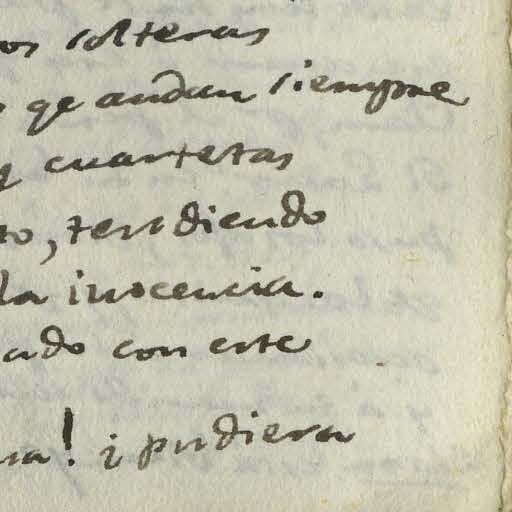 os solteras
qe andan siempre
cuartetas
to, tendiendo
la inocencia.
ado con este
na! ¿pudiera